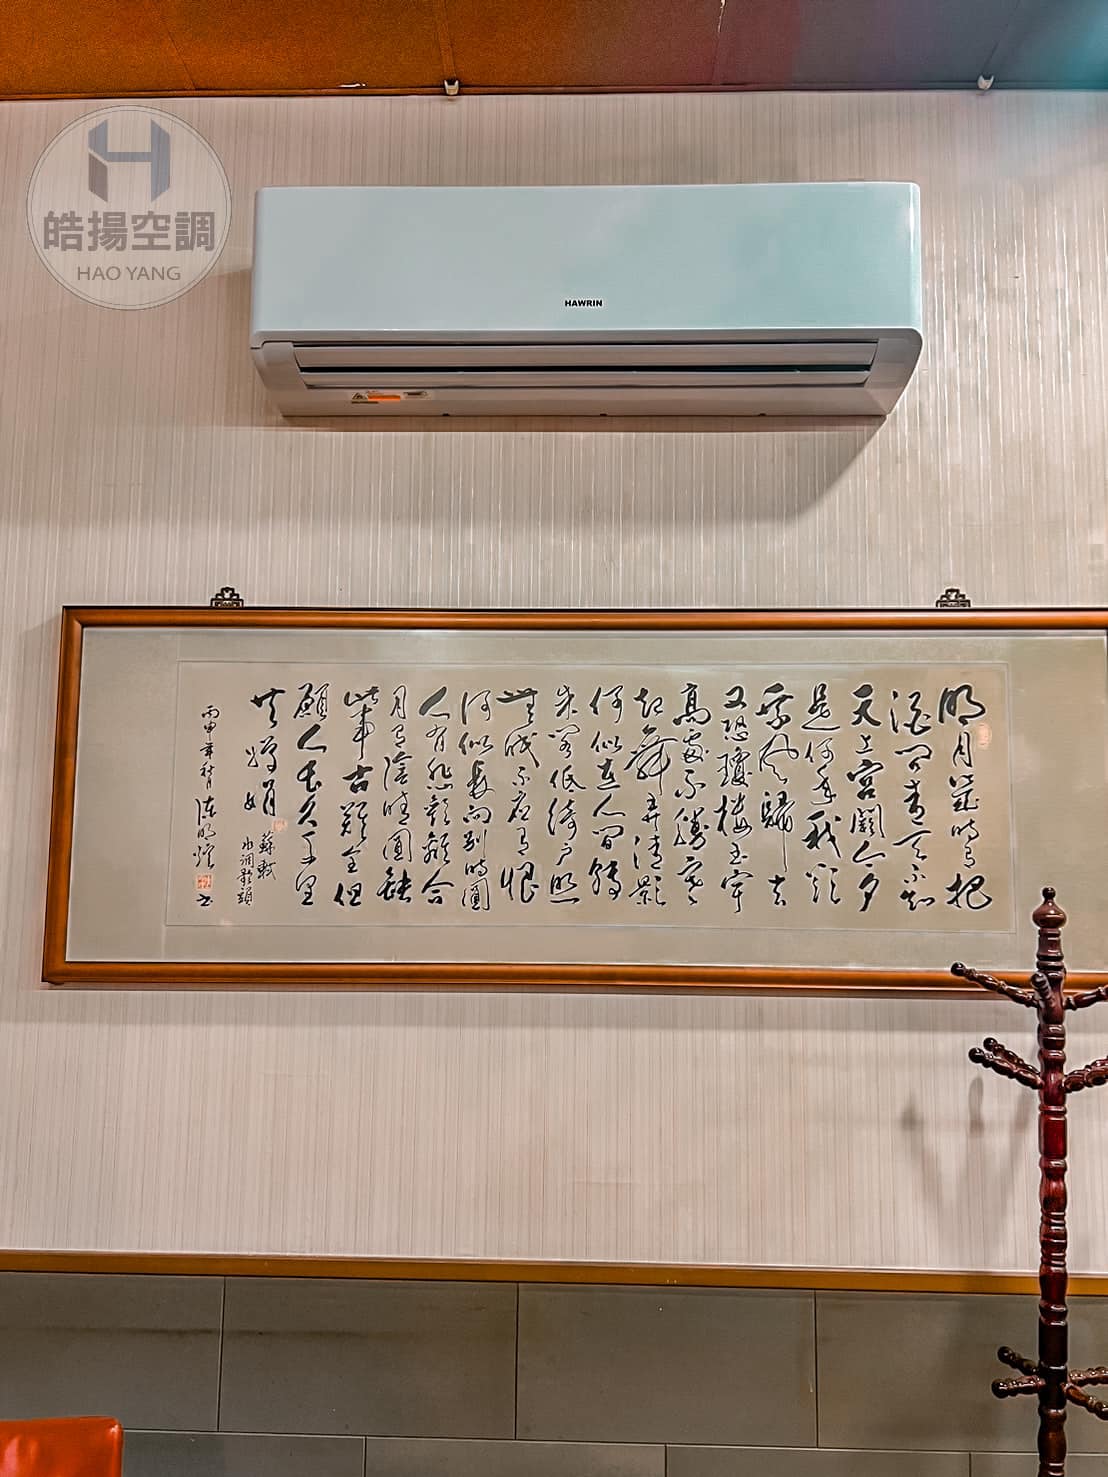 皓揚空調
HAO YANG
HAWRIN
明月幾時有把
酒問青天不知
天上宮闕今夕
是何年我欲
乘風歸去
又恐瓊樓玉宇
高處不勝寒
起舞弄清影
何似在人間轉
朱閣低綺戶照
無眠不應有恨
何似長向別時圓
人有悲歡離合
月有陰晴圓缺
此事古難全但
願人長久千里
共嬋娟 蘇軾
水調歌頭
丙申年秋月 陳明 書